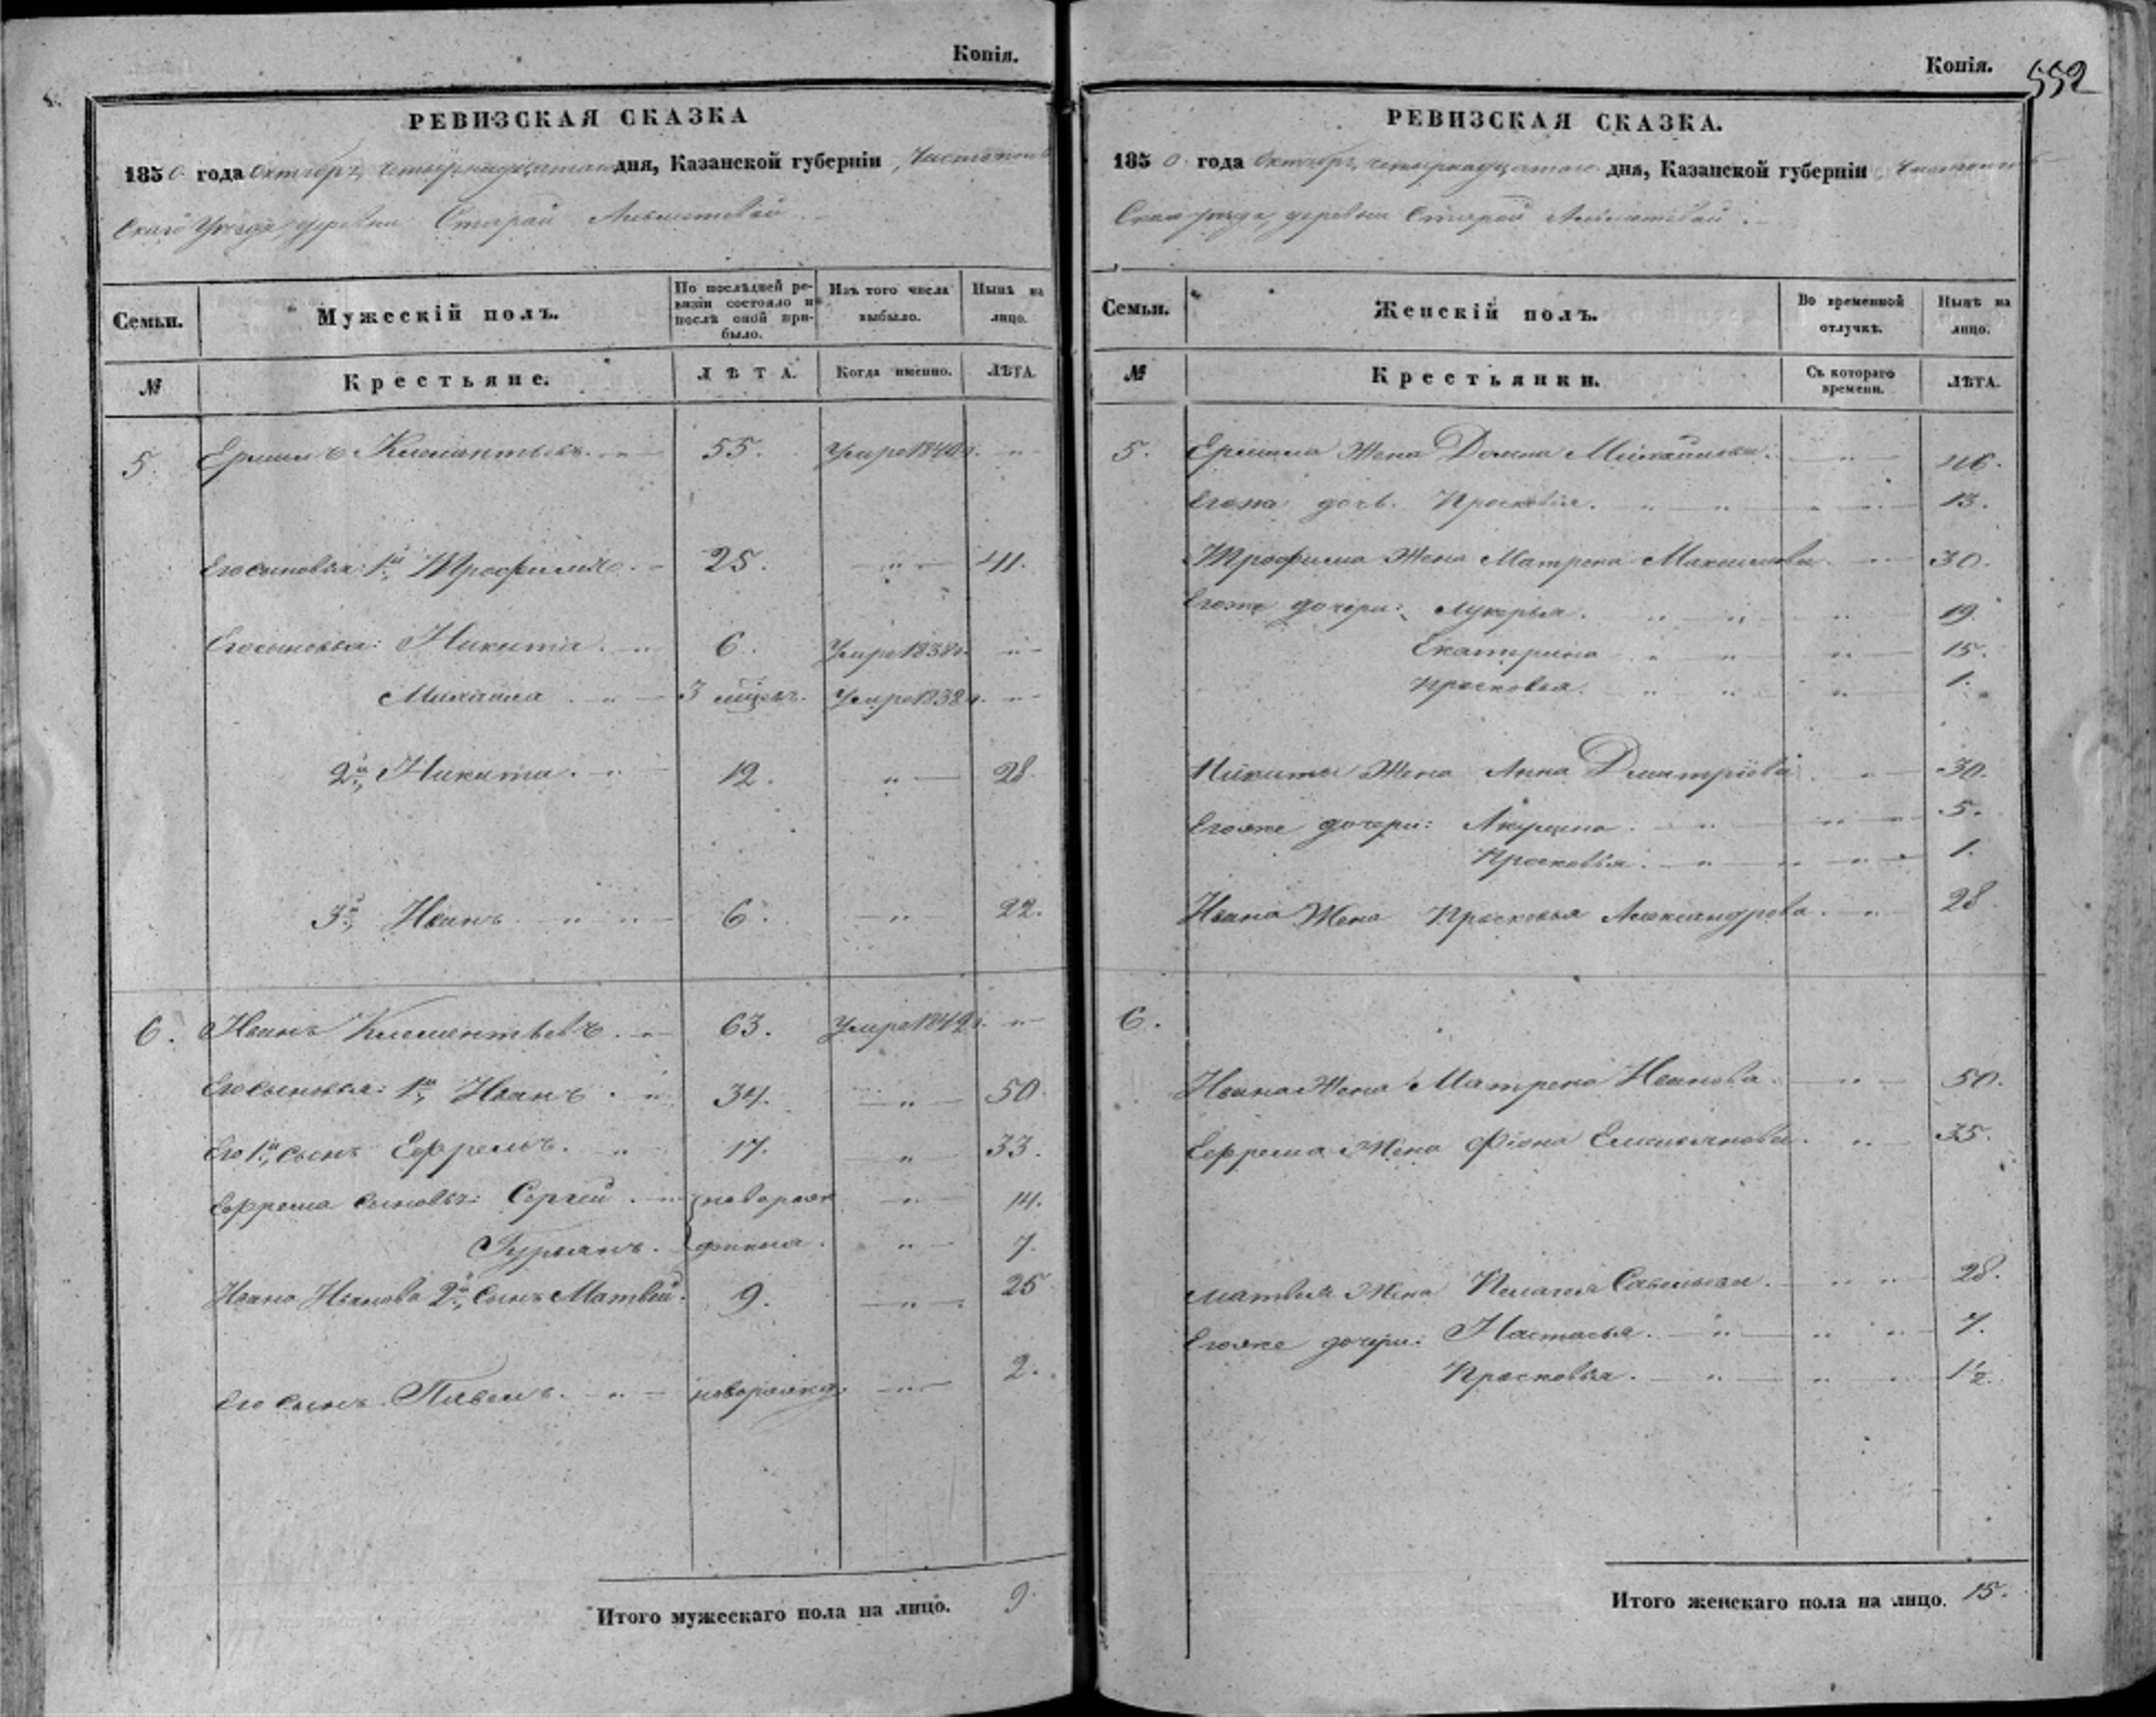 Копія.
РЕВИЗСКАЯ СКАЗКА
1850 года Октября четырнадцатаго дня, Казанской губерніи, Чистополь
скаго Уезда, деревни Старой
Семьи.
Мужескій полъ.
По послѣдней ре-
визіи состояло и
послѣ оной при-
было.
Изъ того числа
выбыло.
Нынѣ на
лицо.
№
Крестьяне.
ЛѢТА.
Когда именно.
ЛѢТА.
5. 55. Умре 184
Его сыновья: 1й Трофимъ. 25. 41.
Его сыновья: Никита. 6. Умре 1838г.
Михаила. 3 Умре 1838г.
2й, Никита. 12. 28
3й, Иванъ. 6. 22.
6. Иванъ Клементьевъ. 63. Умре 1842г.
Его сыновья: 1й, Иванъ. 34. 50.
Его 1й, сынъ Ефремъ. 17. 33.
Ефрема сыновья: Сергей. новорож 14.
Гурьянъ. 7.
Ивана Иванова 2й, сынъ Матвей. 9. 25
Его сынъ Павелъ. новорожд. 2.
Итого мужескаго пола на лицо. 9.
Копія. 552
РЕВИЗСКАЯ СКАЗКА.
1850 года Октября четырнадцатаго дня, Казанской губерніи, Чистополь
скаго уезда, деревни Старой
Семьи.
Женскій полъ.
Во временной
отлучкѣ.
Нынѣ на
лицо.
№
Крестьянки.
Съ котораго
времени.
ЛѢТА.
5. жена Домна Михайлова. 46.
Егоже дочь Прасковья. 13.
Трофима жена Матрена Максимова. 30.
Егоже дочери: Лукерья. 19
Екатерина 15.
Прасковья. 1.
Никиты жена Анна Дмитріева 30.
Егоже дочери: 5.
Прасковья. 1.
Ивана жена Прасковья Александрова. 28
6.
Ивана жена Матрена Иванова. 50.
Ефрема жена Емельянова. 35.
Матвея жена Пелагея Савельева. 28.
Егоже дочери: Настасья. 7.
Прасковья. 1½.
Итого женскаго пола на лицо. 15.